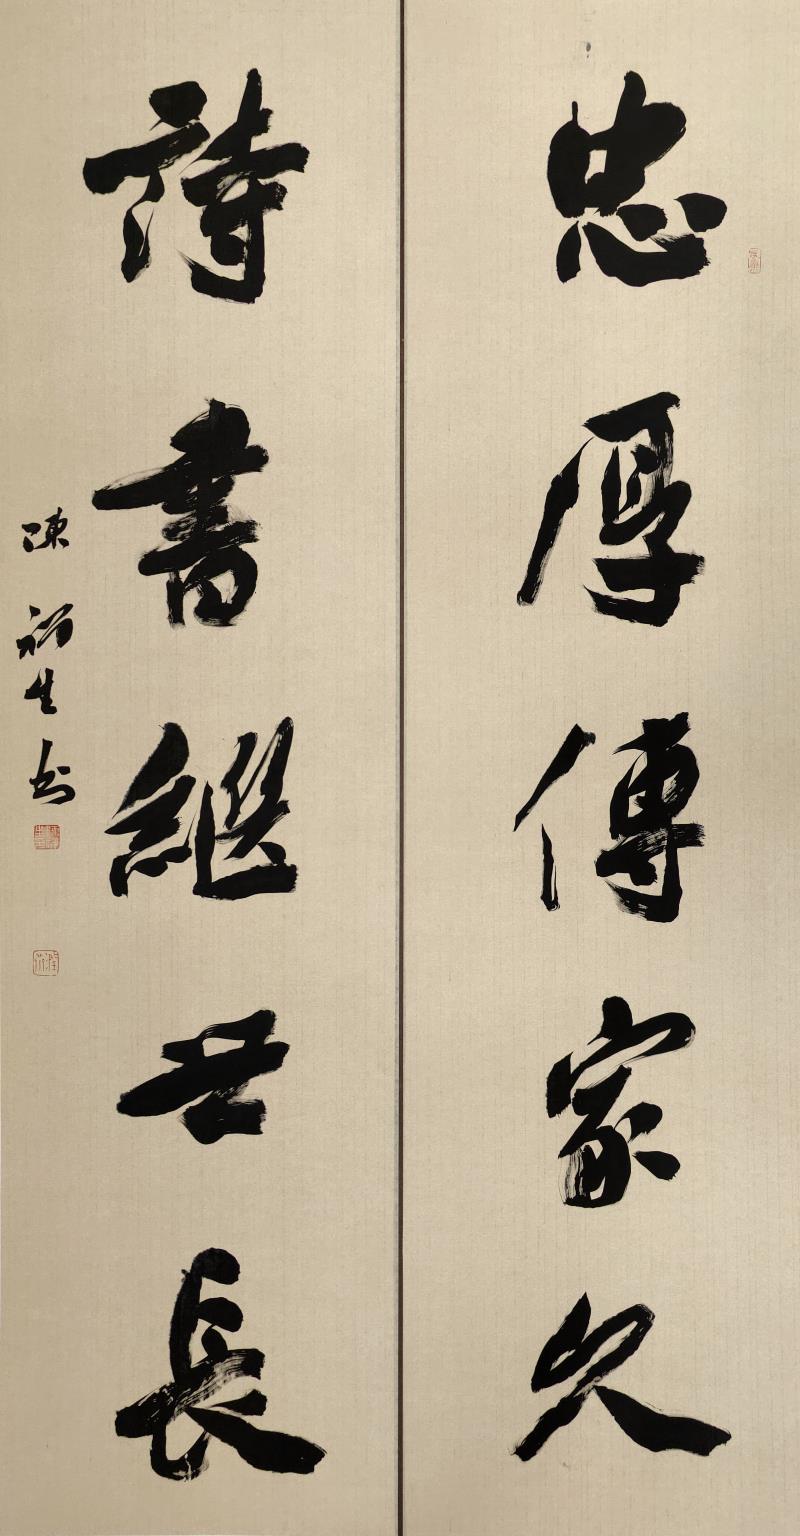 忠厚傳家久
詩書繼世長
陳初生書